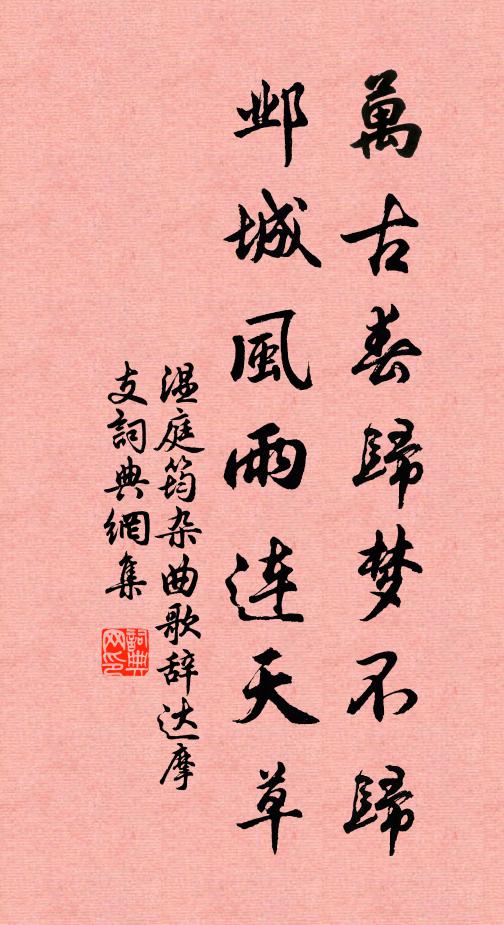 萬古春歸梦不歸
邺城風雨連天草
温庭筠杂曲歌辞达摩
支詞典網集
詞典
网印